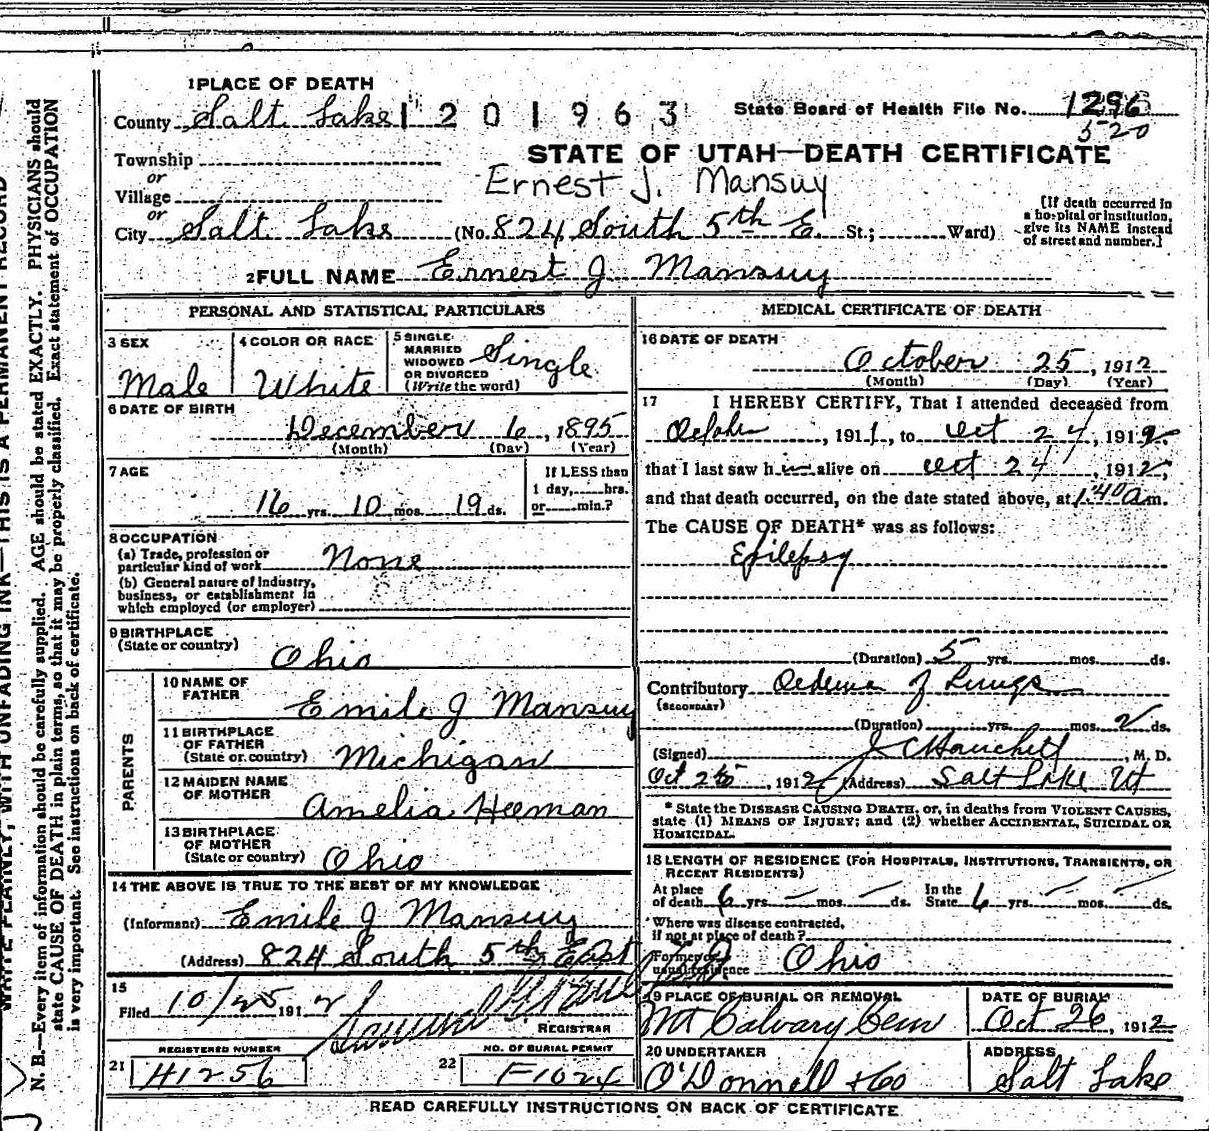 1 PLACE OF DEATH
County Salt Lake 1201963 State Board of Health File No. 1296
520
Township
or
STATE OF UTAH—DEATH CERTIFICATE
Village
Ernest J. Mansuy
or
City Salt Lake (No. 824 South 5th E. St.; Ward)
[If death occurred in
a hospital or institution,
give its NAME instead
of street and number.]
2 FULL NAME Ernest J Mansuy
PERSONAL AND STATISTICAL PARTICULARS
3 SEX
Male
4 COLOR OR RACE
White
5 SINGLE
MARRIED
WIDOWED
OR DIVORCED
(Write the word)
Single
6 DATE OF BIRTH
December 6, 1895
(Month) (Day) (Year)
7 AGE
16 yrs. 10 mos. 19 ds.
If LESS than
1 day, hrs.
or min.?
8 OCCUPATION
(a) Trade, profession or
particular kind of work None
(b) General nature of industry,
business, or establishment in
which employed (or employer)
9 BIRTHPLACE
(State or country)
Ohio
PARENTS
10 NAME OF
FATHER
Emile J Mansuy
11 BIRTHPLACE
OF FATHER
(State or country) Michigan
12 MAIDEN NAME
OF MOTHER
Amelia Heeman
13 BIRTHPLACE
OF MOTHER
(State or country) Ohio
14 THE ABOVE IS TRUE TO THE BEST OF MY KNOWLEDGE
(Informant) Emile J Mansuy
(Address) 824 South 5th East
15
Filed 10/25 1912
REGISTRAR
REGISTERED NUMBER
21 H1256
NO. OF BURIAL PERMIT
22 F1024
MEDICAL CERTIFICATE OF DEATH
16 DATE OF DEATH
October 25, 1912
(Month) (Day) (Year)
17 I HEREBY CERTIFY, That I attended deceased from
October, 1911, to Oct 24, 1912,
that I last saw him alive on Oct 24, 1912,
and that death occurred, on the date stated above, at 1:40 a m.
The CAUSE OF DEATH* was as follows:
Epilepsy
(Duration) 5 yrs. mos. ds.
Contributory Oedema of Lungs
(SECONDARY)
(Duration) yrs. mos. 2 ds.
(Signed) J C Hanchett, M. D.
Oct 25, 1912 (Address) Salt Lake Ut
* State the DISEASE CAUSING DEATH, or, in deaths from VIOLENT CAUSES,
state (1) MEANS OF INJURY; and (2) whether ACCIDENTAL, SUICIDAL OR
HOMICIDAL.
18 LENGTH OF RESIDENCE (FOR HOSPITALS, INSTITUTIONS, TRANSIENTS, OR
RECENT RESIDENTS)
At place
of death 6 yrs. — mos. — ds. In the
State 6 yrs. — mos. — ds.
Where was disease contracted,
if not at place of death?
Former or
usual residence Ohio
19 PLACE OF BURIAL OR REMOVAL
Mt Calvary Cem
DATE OF BURIAL
Oct 26, 1912
20 UNDERTAKER
O'Donnell & Co
ADDRESS
Salt Lake
READ CAREFULLY INSTRUCTIONS ON BACK OF CERTIFICATE
WRITE PLAINLY, WITH UNFADING INK—THIS IS A PERMANENT RECORD
N. B.—Every item of information should be carefully supplied. AGE should be stated EXACTLY. PHYSICIANS should
state CAUSE OF DEATH in plain terms, so that it may be properly classified. Exact statement of OCCUPATION
is very important. See instructions on back of certificate.